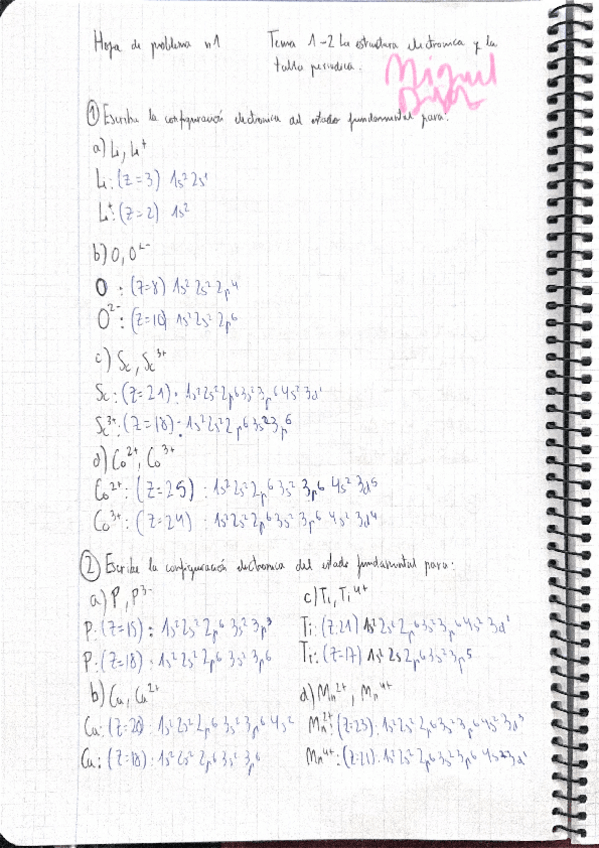 Hoja de problema nº1 Tema 1-2 La estructura electronica y la
tabla periodica.
Miguel
① Escribe la configuración electronica del estado fundamental para:
a) Li, Li⁺
Li: (Z=3) 1s² 2s¹
Li⁺: (Z=2) 1s²
b) O, O²⁻
O : (Z=8) 1s² 2s² 2p⁴
O²⁻: (Z=10) 1s² 2s² 2p⁶
c) Sc, Sc³⁺
Sc: (Z=21): 1s² 2s² 2p⁶ 3s² 3p⁶ 4s² 3d¹
Sc³⁺: (Z=18): 1s² 2s² 2p⁶ 3s² 3p⁶
d) Co²⁺, Co³⁺
Co²⁺: (Z=25) : 1s² 2s² 2p⁶ 3s² 3p⁶ 4s² 3d⁵
Co³⁺: (Z=24) : 1s² 2s² 2p⁶ 3s² 3p⁶ 4s² 3d⁴
② Escribe la configuración electronica del estado fundamental para:
a) P, P³⁻
P: (Z=15) : 1s² 2s² 2p⁶ 3s² 3p³
P: (Z=18) : 1s² 2s² 2p⁶ 3s² 3p⁶
b) Ca, Ca²⁺
Ca: (Z=20) : 1s² 2s² 2p⁶ 3s² 3p⁶ 4s²
Ca: (Z=18) : 1s² 2s² 2p⁶ 3s² 3p⁶
c) Ti, Ti⁴⁺
Ti: (Z:21) 1s² 2s² 2p⁶ 3s² 3p⁶ 4s² 3d¹
Ti: (Z=17) 1s² 2s 2p⁶ 3s² 3p⁵
d) Mn²⁺, Mn⁴⁺
Mn²⁺: (Z=23): 1s² 2s² 2p⁶ 3s² 3p⁶ 4s² 3d³
Mn⁴⁺: (Z:21): 1s² 2s² 2p⁶ 3s² 3p⁶ 4s² 3d¹